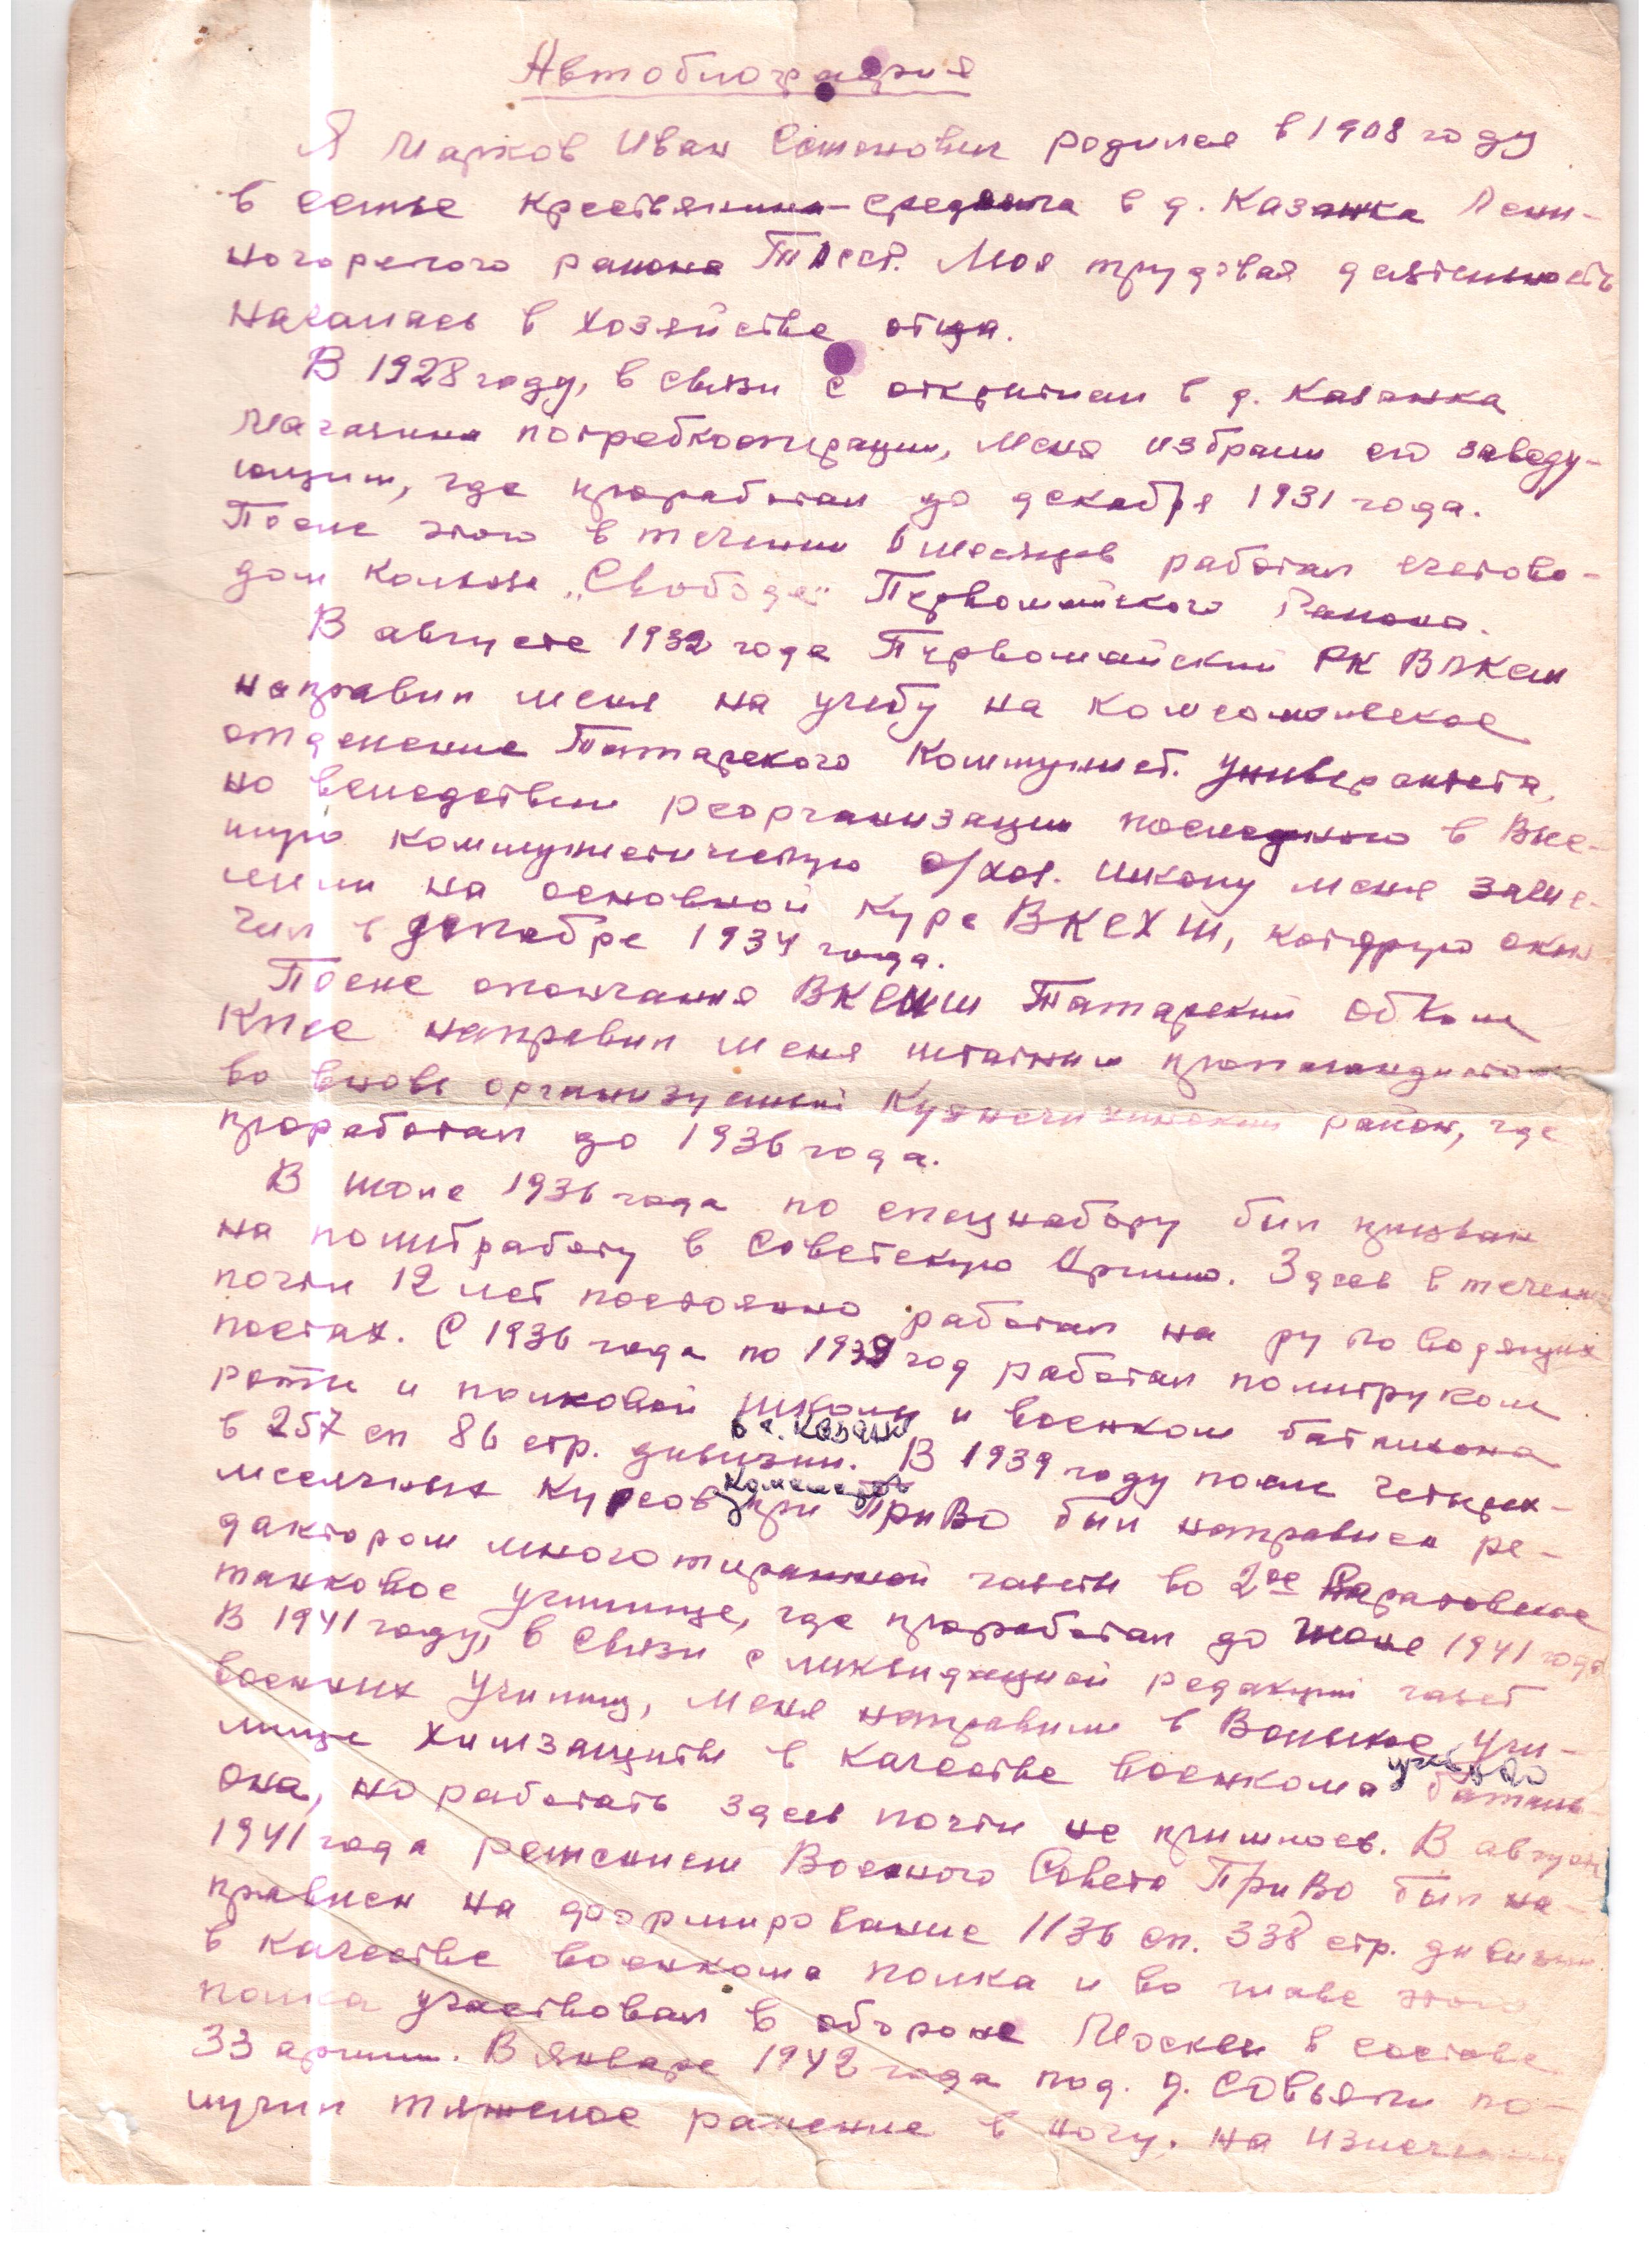 Автобиография
Я Марков Иван Семенович родился в 1908 году
в семье крестьянина-середняка в д. Казанка Лени-
ногорского района ТАССР. Моя трудовая деятельность
началась в хозяйстве отца.
В 1928 году, в связи с открытием в д. Казанка
магазина потребкооперации, меня избрали его заведу-
ющим, где проработал до декабря 1931 года.
После этого в течении месяцев работал счетово-
дом колхоза „Свобода" Первомайского района.
В августе 1932 года Первомайский РК ВЛКСМ
направил меня на учебу на комсомольское
отделение Татарского Коммунист. университета,
но вследствии реорганизации последнего в Выс-
шую коммунистическую с/хоз. школу меня зачис-
лили на основной курс ВКСХШ, которую окон
чил в декабре 1934 года.
После окончания ВКСХШ Татарский обком
КПСС направил меня штатным пропагандистом
во вновь организуемый район, где
проработал до 1936 года.
В июле 1936 года по спецнабору был призван
на политработу в Советскую Армию. Здесь в течении
почти 12 лет постоянно работал на руководящих
постах. С 1936 года по 1939 год работал политруком
роты и полковой школы и военком батальона
в 257 сп 86 стр. дивизии. в г. Казани В 1939 году после четырех-
месячных курсов при ПриВО был направлен ре-
дактором многотиражной газеты во 2ое Саратовское
танковое училище, где проработал до июня 1941 года
В 1941 году, в связи с ликвидацией редакций газет
военных училищ, меня направили в Вольское учи-
лище химзащиты в качестве военкома батальо-
она, но работать здесь почти не пришлось. В августе
1941 года решением Военного Совета ПриВО был на-
правлен на доформирование 1136 сп. 338 стр. дивизии
в качестве военкома полка и во главе этого
полка участвовал в обороне Москвы в составе
33 армии. В январе 1942 года под. д. СОВЬЯКИ по-
лучил тяжелое ранение в ногу. На излечении